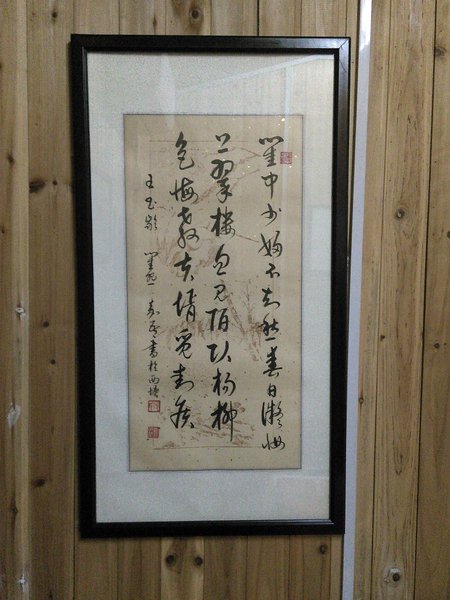 閨中少婦不知愁春日凝妝
上翠樓忽見陌頭楊柳
色悔教夫婿覓封侯
王昌齡 閨怨 書於西塘